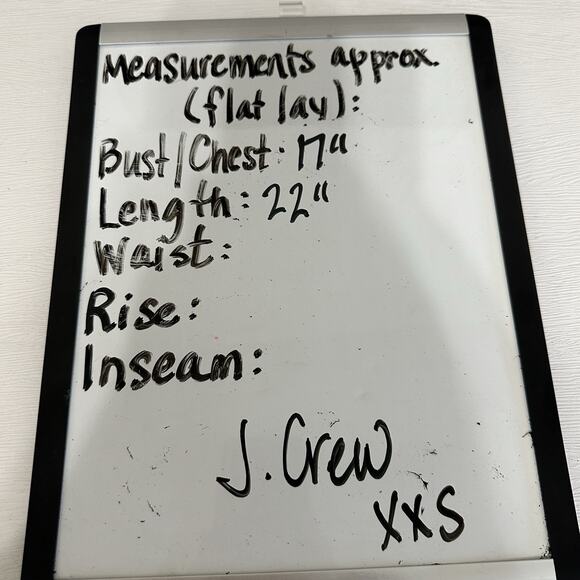 Measurements approx.
(flat lay):
Bust/Chest: 17"
Length: 22"
Waist:
Rise:
Inseam:
J. Crew
XXS